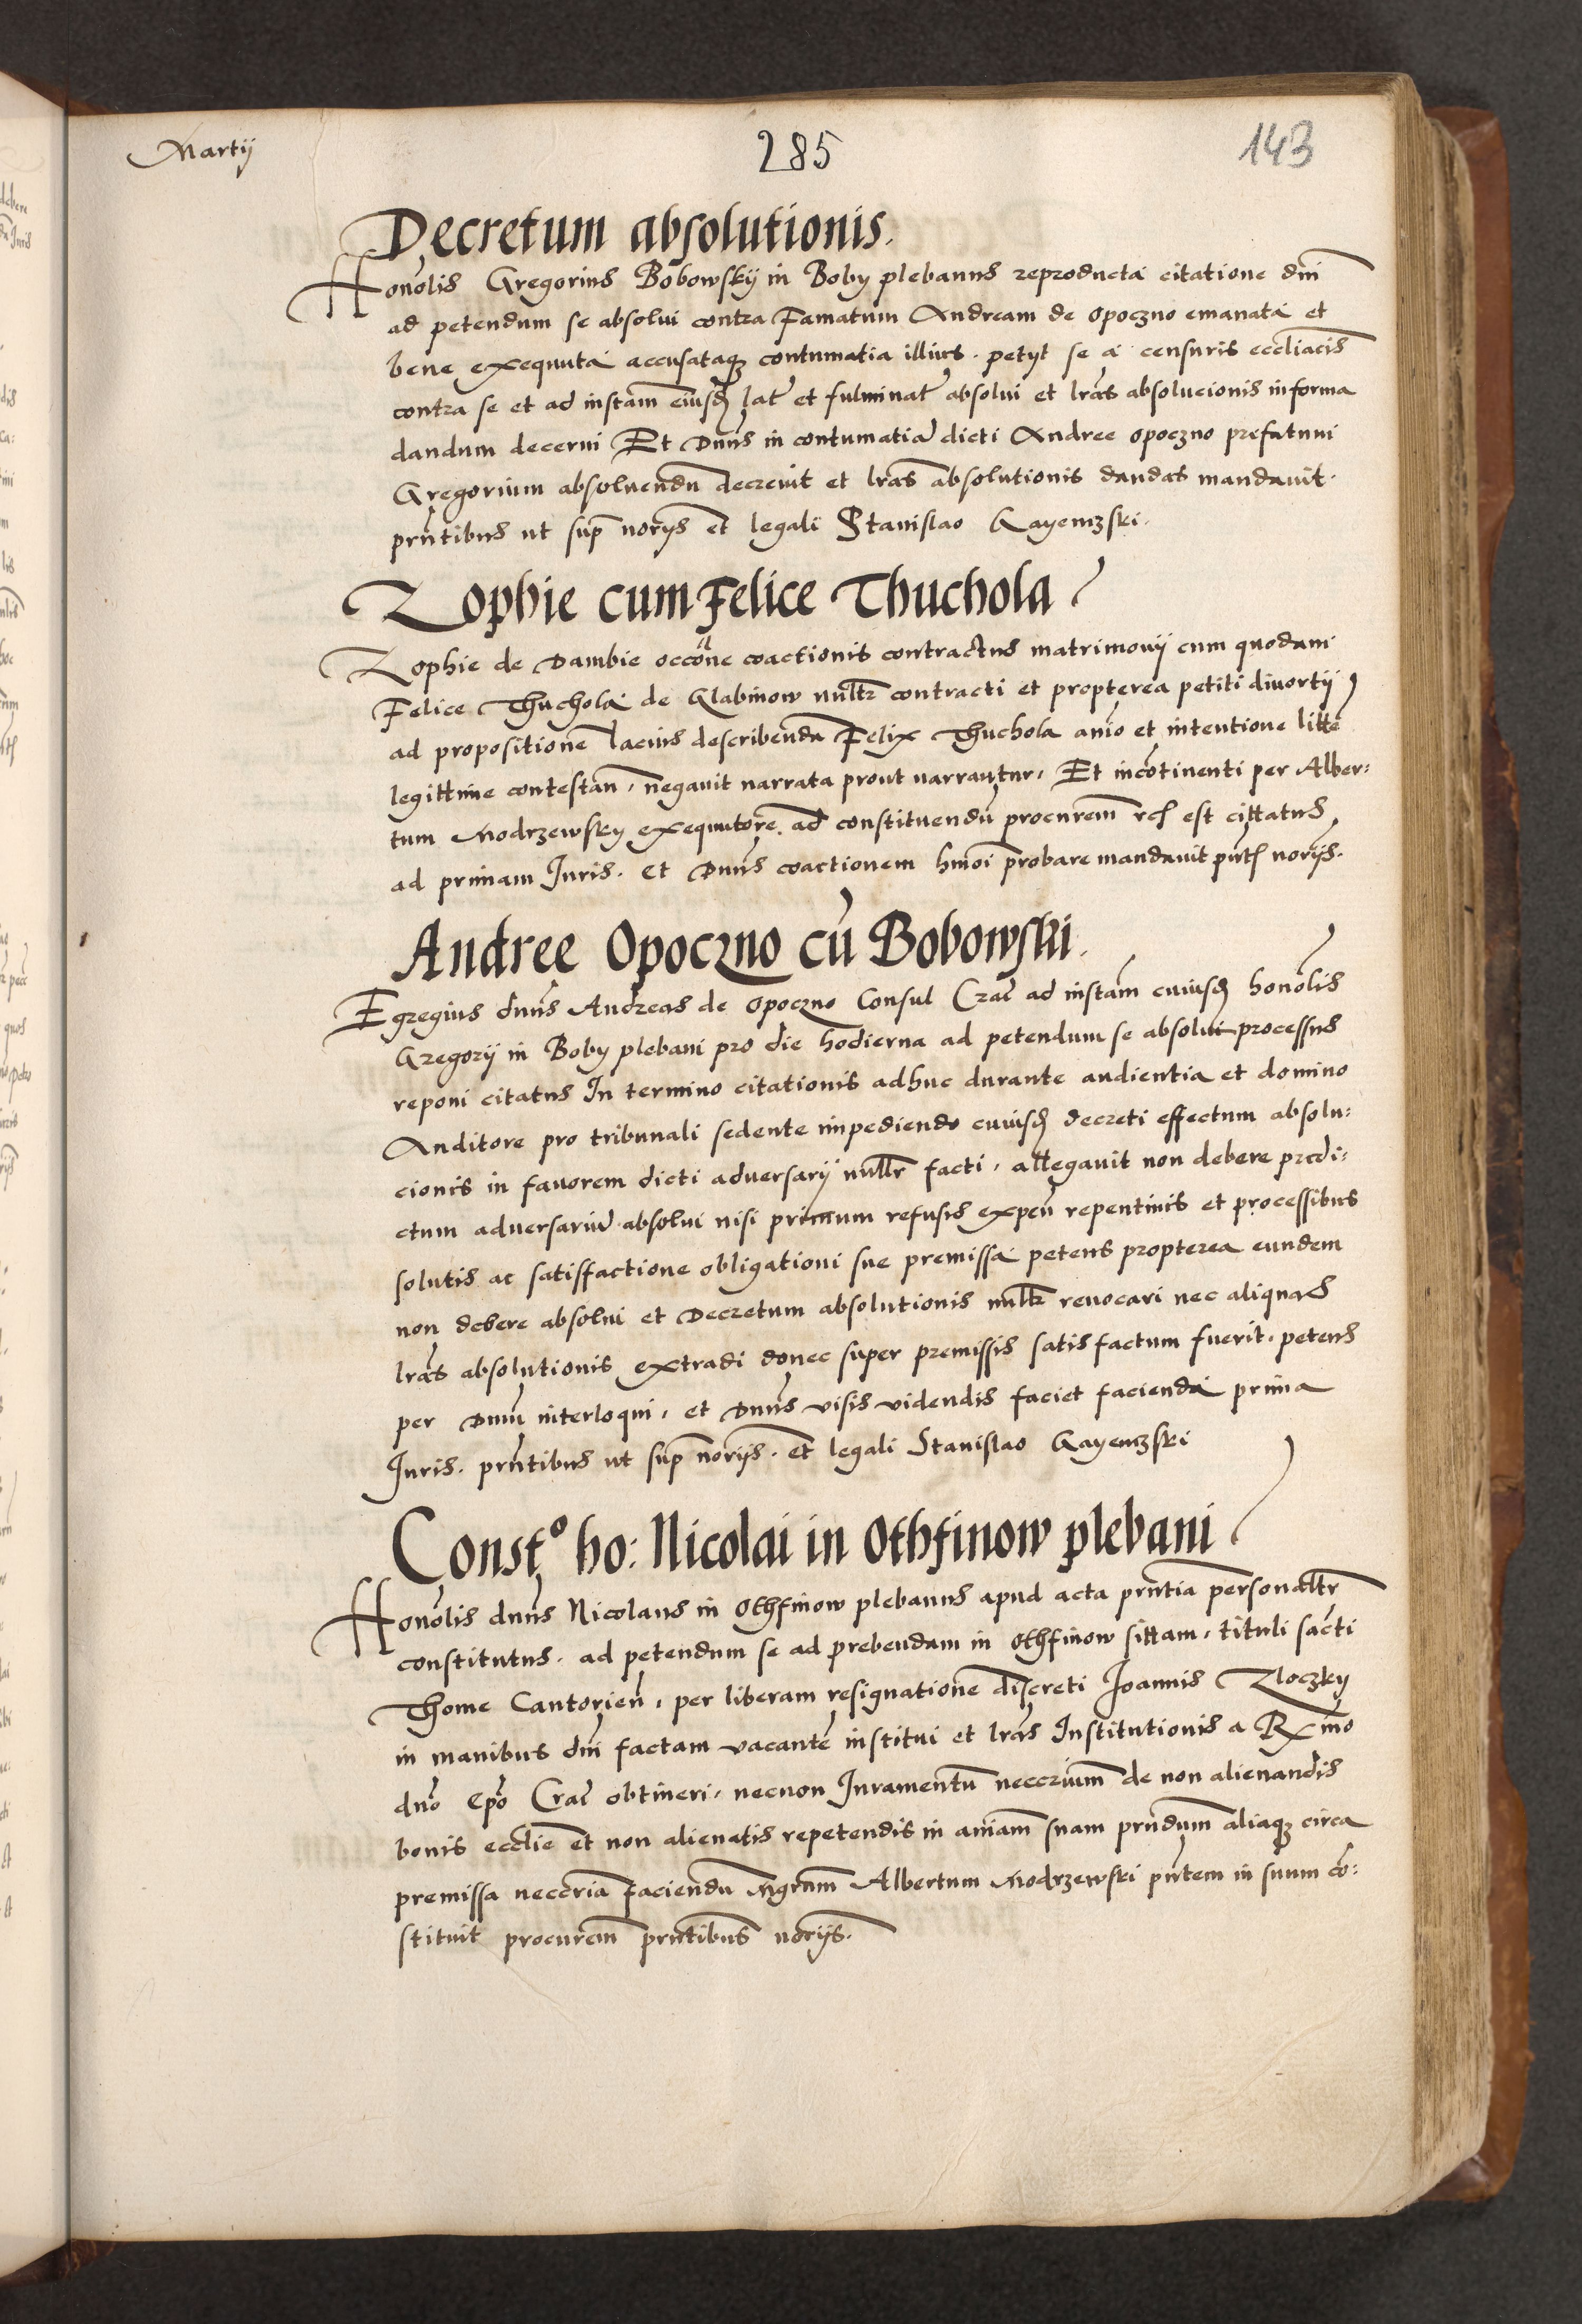 Martij
285
143
Decretum absolutionis.
Honol̄is Gregorius Bobowskij in Boby plebanus reproducta citatione dnī
ad petendum se absolui contra Famatum Andream de Opoczno emanata et
bene exequuta accusataqz contumatia illius. petyt se a censuris eccl̄iacis
contra se et ad instam̄ eiusd lat et fulminat absolui et lr̄as absolucionis in forma
dandum decerni Et Dnūs in contumatiā dicti Andree Opoczno prefatum
Gregorium absoluendū decreuit et lr̄as absolutionis dandas mandauit.
prn̄tibus ut sup norijs et legali Stanislao Gayewzski.
Zophie cum Felice Thuchola
Zophie de Dambie occōne coactionis contractus matrimonij cum quodam
Felice Thuchola de Glabinow nultr contracti et propterea petiti diuortij
ad propositionē lacius describendā Felix Thuchola anīo et intentione litte
legittime contestan̄. negauit narrata prout narrantur. Et incōtinenti per Alber:
tum Modrzewsky exequutorē ad constituendū procurem̄ est cittatus
ad primam Juris. et Dnūs coactionem hmōi probare mandauit pn̄t norijs.
Andree Opoczno cū Bobowski.
Egregius dnūs Andreas de Opoczno Consul Crac̄ ad instam̄ cuiusd honol̄is
Gregorij in Boby plebani pro die hodierna ad petendum se absolui processus
reponi citatus In termino citationis adhuc durante audientia et domino
Auditore pro tribunali sedente impediendo cuiusd decreti effectum absolu:
cionis in fauorem dicti aduersarij nullr facti. allegauit non debere predi:
ctum aduersariū absolui nisi primum refusis expen̄ repentinis et processibus
solutis ac satisfactione obligationi sue premissa petens propterea eundem
non debere absolui et Decretum absolutionis nultr reuocari nec aliquas
lr̄as absolutionis extradi donec super premissis satisfactum fuerit. petens
per Dnū interloqui. et Dnūs visis videndis faciet facienda prima
Juris. prn̄tibus ut sup norijs. et legali Stanislao Gayewzski
Constº ho: Nicolai in Othfinow plebani
Honol̄is dnūs Nicolaus in Othfinow plebanus apud acta prn̄tia personaltr
constitutus. ad petendum se ad prebendam in Othfinow sittam. tituli sacti
Thome Cantorien̄. per liberam resignationē discreti Joannis Zloczky
in manibus dnī factam vacantē institui et lr̄as Institutionis a Rx̄mo
dnō Epō Crac̄ obtineri. necnon Juramentū neccr̄ium de non alienandis
bonis eccl̄ie et non alienatis repetendis in aniam̄ suam prn̄dum̄ aliaqz circa
premissa neccr̄ia faciendū Mgrūm Albertum Modrzewski pn̄tem in suum cō:
stituit procurem̄ prn̄tibus norijs.